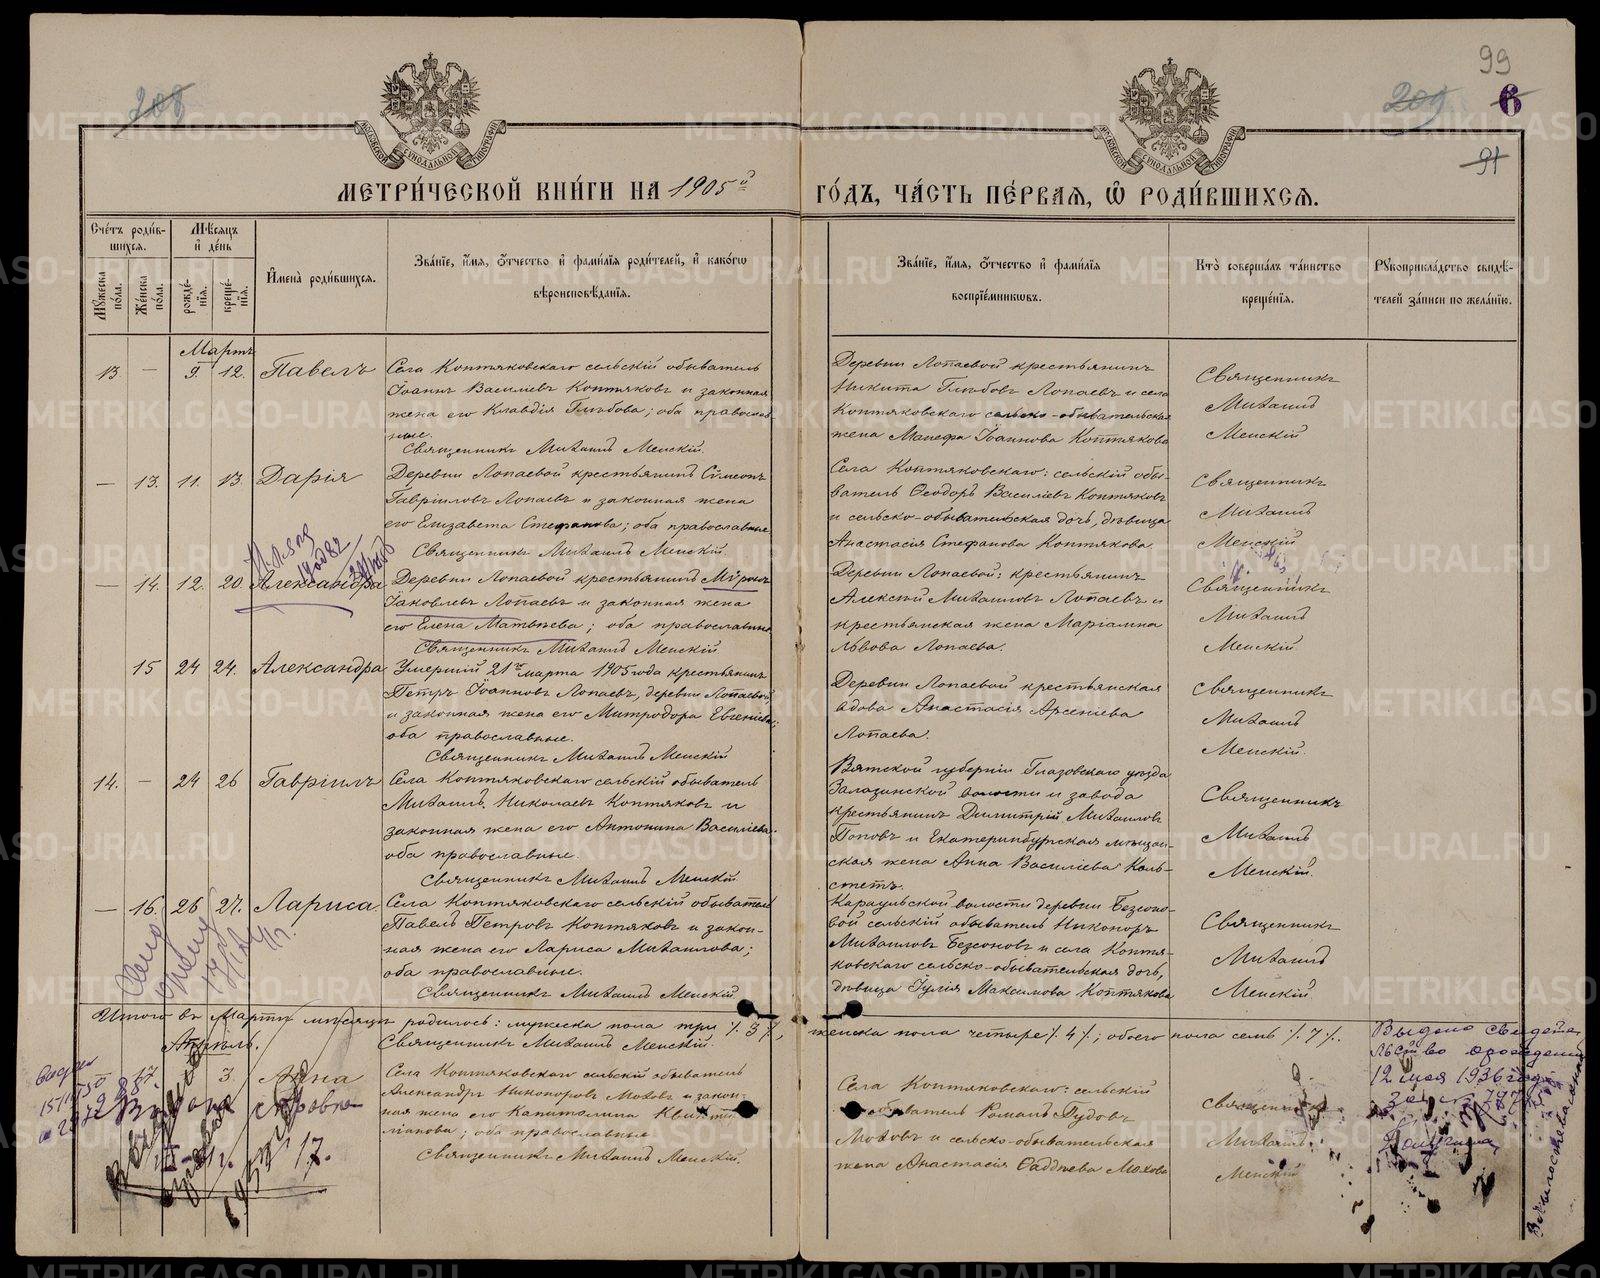 208
99
209
6
91
МОСКОВСКОЙ СѴНОДАЛЬНОЙ ТИПОГРАФІИ
МОСКОВСКОЙ СѴНОДАЛЬНОЙ ТИПОГРАФІИ
МЕТРИ́ЧЕСКОЙ КНИ́ГИ НА 1905й ГО́ДЪ, ЧА́СТЬ ПЕ́РВАѦ, Ѡ РОДИ́ВШИХСѦ.
Сче́тъ роди́в-
шихсѧ.
Мꙋ́жеска по́ла.
Же́нска по́ла.
Мѣ́сѧцъ
и҆ де́нь
рожде́-
нїѧ.
креще́-
нїѧ.
И҆мена̀ роди́вшихсѧ.
Зва́нїе, и҆́мѧ, ѻ҆́тчество и҆ фами́лїѧ роди́телей, и҆ како́гѡ
вѣроисповѣ́данїѧ.
Зва́нїе, и҆́мѧ, ѻ҆́тчество и҆ фами́лїѧ
воспрїе́мникѡвъ.
Кто̀ соверша́лъ та́инство
креще́нїѧ.
Рꙋкоприкла́дство свидѣ́-
телей за́писи по жела́нїю.
Мартъ
13. — 9. 12. Павелъ
Села Коптяковскаго сельскій обыватель
Іоаннъ Василіевъ Коптяковъ и законная
жена его Клавдія Глѣбова; оба православ-
ные.
Священникъ Михаилъ Менскій.
Деревни Лопаевой крестьянинъ
Никита Глѣбовъ Лопаевъ и села
Коптяковскаго сельско-обывательская
жена Манефа Іоаннова Коптякова
Священникъ
Михаилъ
Менскій
— 13. 11. 13. Дарія
Деревни Лопаевой крестьянинъ Сѵмеонъ
Гавріиловъ Лопаевъ и законная жена
его Елизавета Стефанова; оба православные
Священникъ Михаилъ Менскій.
Села Коптяковскаго: сельскій обы-
ватель Ѳеодоръ Василіевъ Коптяковъ
и сельско-обывательская дочь, дѣвица
Анастасія Стефанова Коптякова.
Священникъ
Михаилъ
Менскій
— 14. 12. 20 Александра
Деревни Лопаевой крестьянинъ Мѵронъ
Іаковлевъ Лопаевъ и законная жена
его Елена Матѳеева; оба православные
Священникъ Михаилъ Менскій
Деревни Лопаевой: крестьянинъ
Алексій Михаиловъ Лопаевъ и
крестьянская жена Маріамна
Львова Лопаева.
Священникъ
Михаилъ
Менскій.
15 24 24. Александра
Умершій 21го марта 1905 года крестьянинъ
Петръ Іоанновъ Лопаевъ, деревни Лопаевой,
и законная жена его Митродора Евгеніева;
оба православные.
Священникъ Михаилъ Менскій
Деревни Лопаевой крестьянская
вдова Анастасія Арсеніева
Лопаева.
Священникъ
Михаилъ
Менскій.
14. — 24 26 Гавріилъ
Села Коптяковскаго сельскій обыватель
Михаилъ Николаевъ Коптяковъ и
законная жена его Антонина Василіева;
оба православные.
Священникъ Михаилъ Менскій
Вятской губерніи Глазовскаго уѣзда
Залазинской волости и завода
крестьянинъ Димитрій Михаиловъ
Поповъ и Екатеринбургская мѣщан-
ская жена Анна Василіева Коль-
стетъ.
Священникъ
Михаилъ
Менскій.
— 16. 26 27. Лариса.
Села Коптяковскаго сельскій обыватель
Павелъ Петровъ Коптяковъ и закон-
ная жена его Лариса Михаилова;
оба православные.
Священникъ Михаилъ Менскій
Караульской волости деревни Безсоно-
вой сельскій обыватель Никоноръ
Михаиловъ Безсоновъ и села Коптя-
ковскаго сельско-обывательская дочь,
дѣвица Іулія Максимова Коптякова
Священникъ
Михаилъ
Менскій
Итого въ Мартѣ мѣсяцѣ родилось: мужеска пола три /. 3 /., женска пола четыре /. 4 /.; обоего пола семь /. 7 /.
Священникъ Михаилъ Менскій.
Апрѣль.
17. 3 Анна
Села Коптяковскаго сельскій обыватель
Александръ Никоноровъ Моховъ и закон-
ная жена его Капитолина Квинти-
ліанова; оба православные
Священникъ Михаилъ Менскій.
Села Коптяковскаго: сельскій
обыватель Романъ Дудовъ
Моховъ и сельско-обывательская
жена Анастасія Ѳаддѣева Мохова
Священникъ
Михаилъ
Менскій
Выдано свидете
льство о рождении
12 мая 1936 года
METRIKI.GASO-URAL.RU